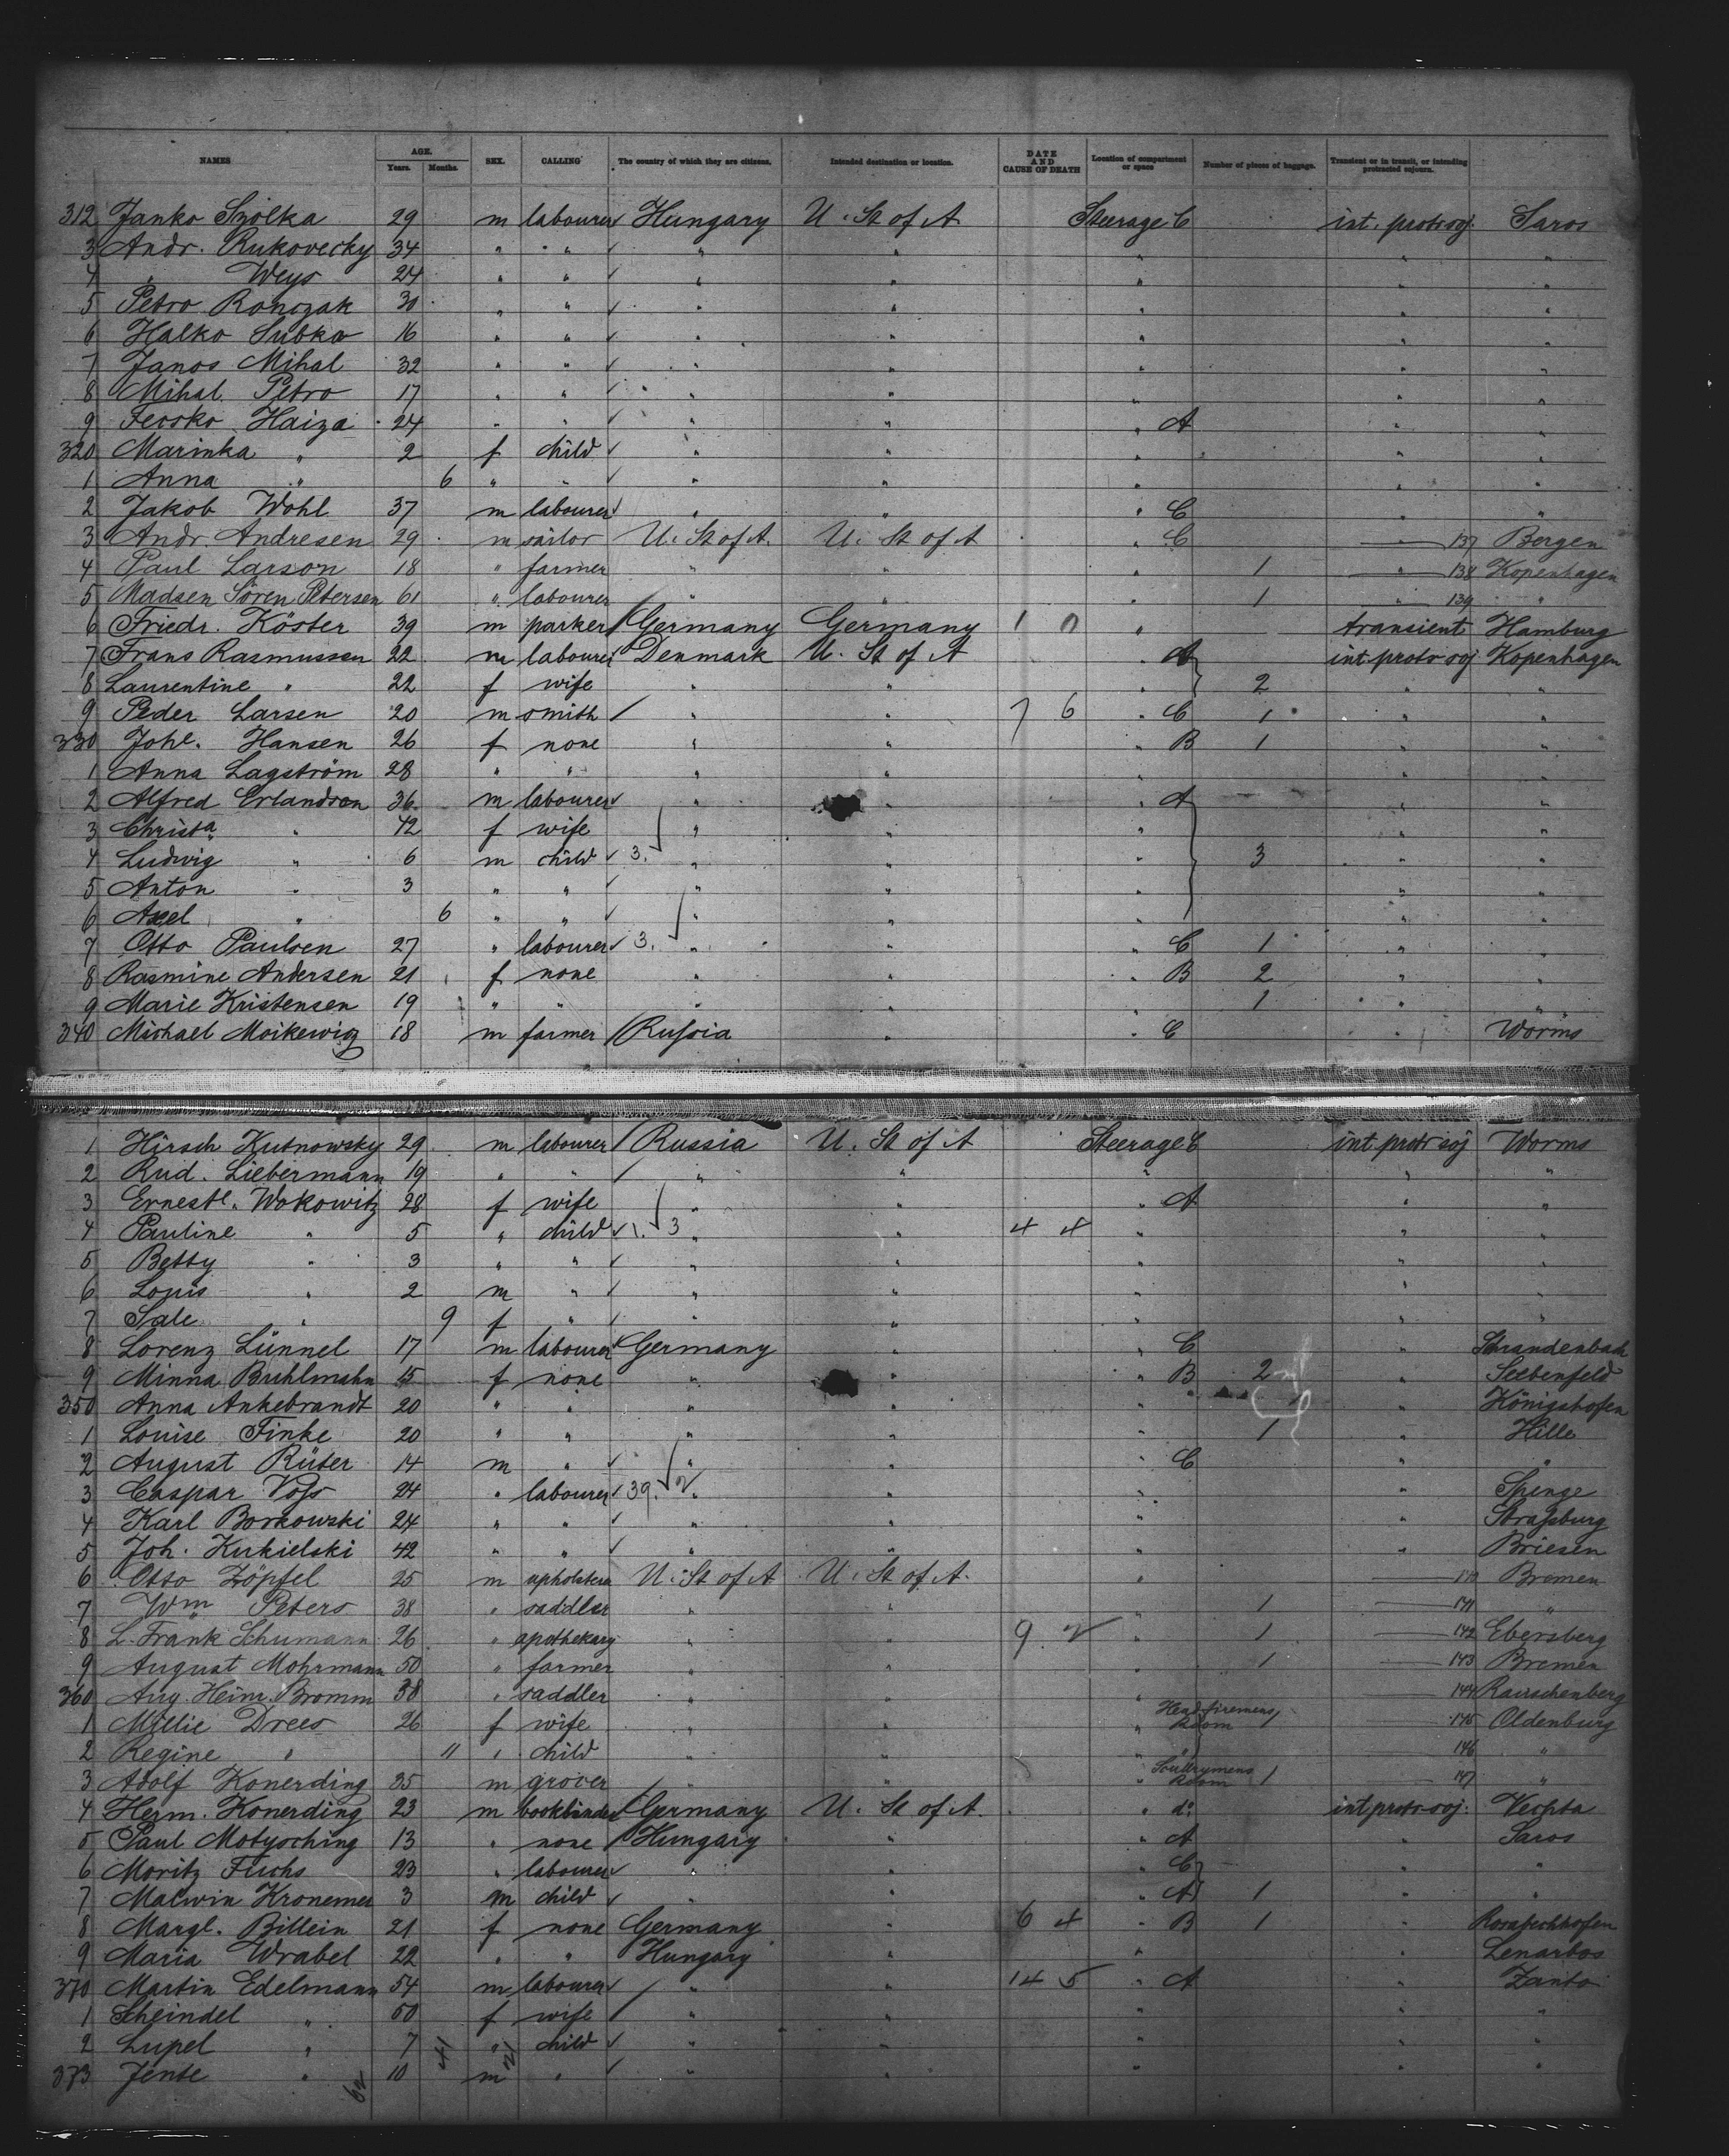 NAMES AGE. Years. Months. SEX. CALLING The country of which they are citizens. Intended destination or location. DATE AND CAUSE OF DEATH Location of compartment or space Number of pieces of baggage. Transient or in transit, or intending protracted sojourn.
312 Janko Szolka 29 m labourer Hungary U. St of A Steerage C int. protr soj. Saros
3 Andr. Rukovecky 34 " " " " " " "
4 " Weys 24 " " " " " " "
5 Petro Ronczak 30 " " " " " " "
6 Halko Subka 16 " " " " " " "
7 Janos Mihal 32 " " " " " " "
8 Mihal Petro 17 " " " " " " "
9 Fecsko Haiza 24 " " " " " A " "
320 Marinka " 2 f child " " " " "
1 Anna " 6 " " " " " " "
2 Jakob Wohl 37 m labourer " " " C " "
3 Andr. Andresen 29 m sailor U. St of A. U. St of A " C " 137 Bergen
4 Paul Larson 18 " farmer " " " 1 " 138 Kopenhagen
5 Madsen Sören Petersen 61 " labourer " " " 1 " 139 "
6 Friedr. Köster 39 m parker Germany Germany 1 0 " transient Hamburg
7 Frans Rasmussen 22 m labourer Denmark U. St of A " A int. protr soj Kopenhagen
8 Laurentine " 22 f wife " " " 2 " "
9 Peder Larsen 20 m smith " " 7 6 " C 1 " "
330 Johe. Hansen 26 f none " " " B 1 " "
1 Anna Lagström 28 " " " " " " "
2 Alfred Erlandson 36 m labourer " " " A " "
3 Christa " 42 f wife " " " " "
4 Ludwig " 6 m child 3. " " " 3 " "
5 Anton " 3 " " " " " " "
6 Axel " 6 " " " " " " "
7 Otto Paulsen 27 " labourer 3. " " " C 1 " "
8 Rasmine Andersen 21 f none " " " B 2 " "
9 Marie Kristensen 19 " " " " " 1 " "
340 Michael Moikewicz 18 m farmer Russia " " C " Worms
1 Hirsch Kutnowsky 29 m labourer Russia U. St of A Steerage C int protr soj Worms
2 Rud. Liebermann 19 " " " " " " "
3 Ernestl. Wokowitz 28 f wife " " " A " "
4 Pauline " 5 " child 1. 3 " " 4 4 " " "
5 Betty " 3 " " " " " " "
6 Louis " 2 m " " " " " "
7 Sale " 9 f " " " " " "
8 Lorenz Lünnel 17 m labourer Germany " " C "
9 Minna Buhlmahn 15 f none " " " B 2 " Seebenfeld
350 Anna Ankebrandt 20 " " " " " " Königshofen
1 Louise Finke 20 " " " " " 1 " Hille
2 August Rüter 14 m " " " " C " "
3 Caspar Voss 24 " labourer 39. 2 " " " " Spenge
4 Karl Borkowski 24 " " " " " " Strassburg
5 Joh. Kukielski 42 " " " " " " Briesen
6 Otto Zöpfel 25 m upholsterer U. St of A U. St of A. " 140 Bremen
7 Wm Peters 38 " saddler " " " 1 141 "
8 L. Frank Schumann 26 " apothekary " " 9 2 " 1 142 Ebersberg
9 August Mohrmann 50 " farmer " " " 1 143 Bremen
360 Aug. Heinr. Bromm 38 " saddler " " " 144 Rauschenberg
1 Millie Drees 26 f wife " " " Head firemens Room 145 Oldenburg
2 Regine " 11 " child " " " " 146 "
3 Adolf Konerding 35 m grocer " " " Scullrymens Room 1 147 "
4 Herm. Konerding 23 m bookbinder Germany U. St of A. " do int protr soj. Vechta
5 Paul Motysching 13 " none Hungary " " A " Saros
6 Moritz Fuchs 23 " labourer " " " C " "
7 Malwin Kronemer 3 m child " " " A 1 " "
8 Margl. Billein 21 f none Germany " 6 4 " B 1 "
9 Maria Wrabel 22 " " Hungary " " " Lenartos
370 Martin Edelmann 54 m labourer " " 14 5 " A " Zanto
1 Scheindel " 50 f wife " " " " "
2 Lupel " 7 " child " " " " "
373 Jente " 10 m " " " " " "
62 41 21